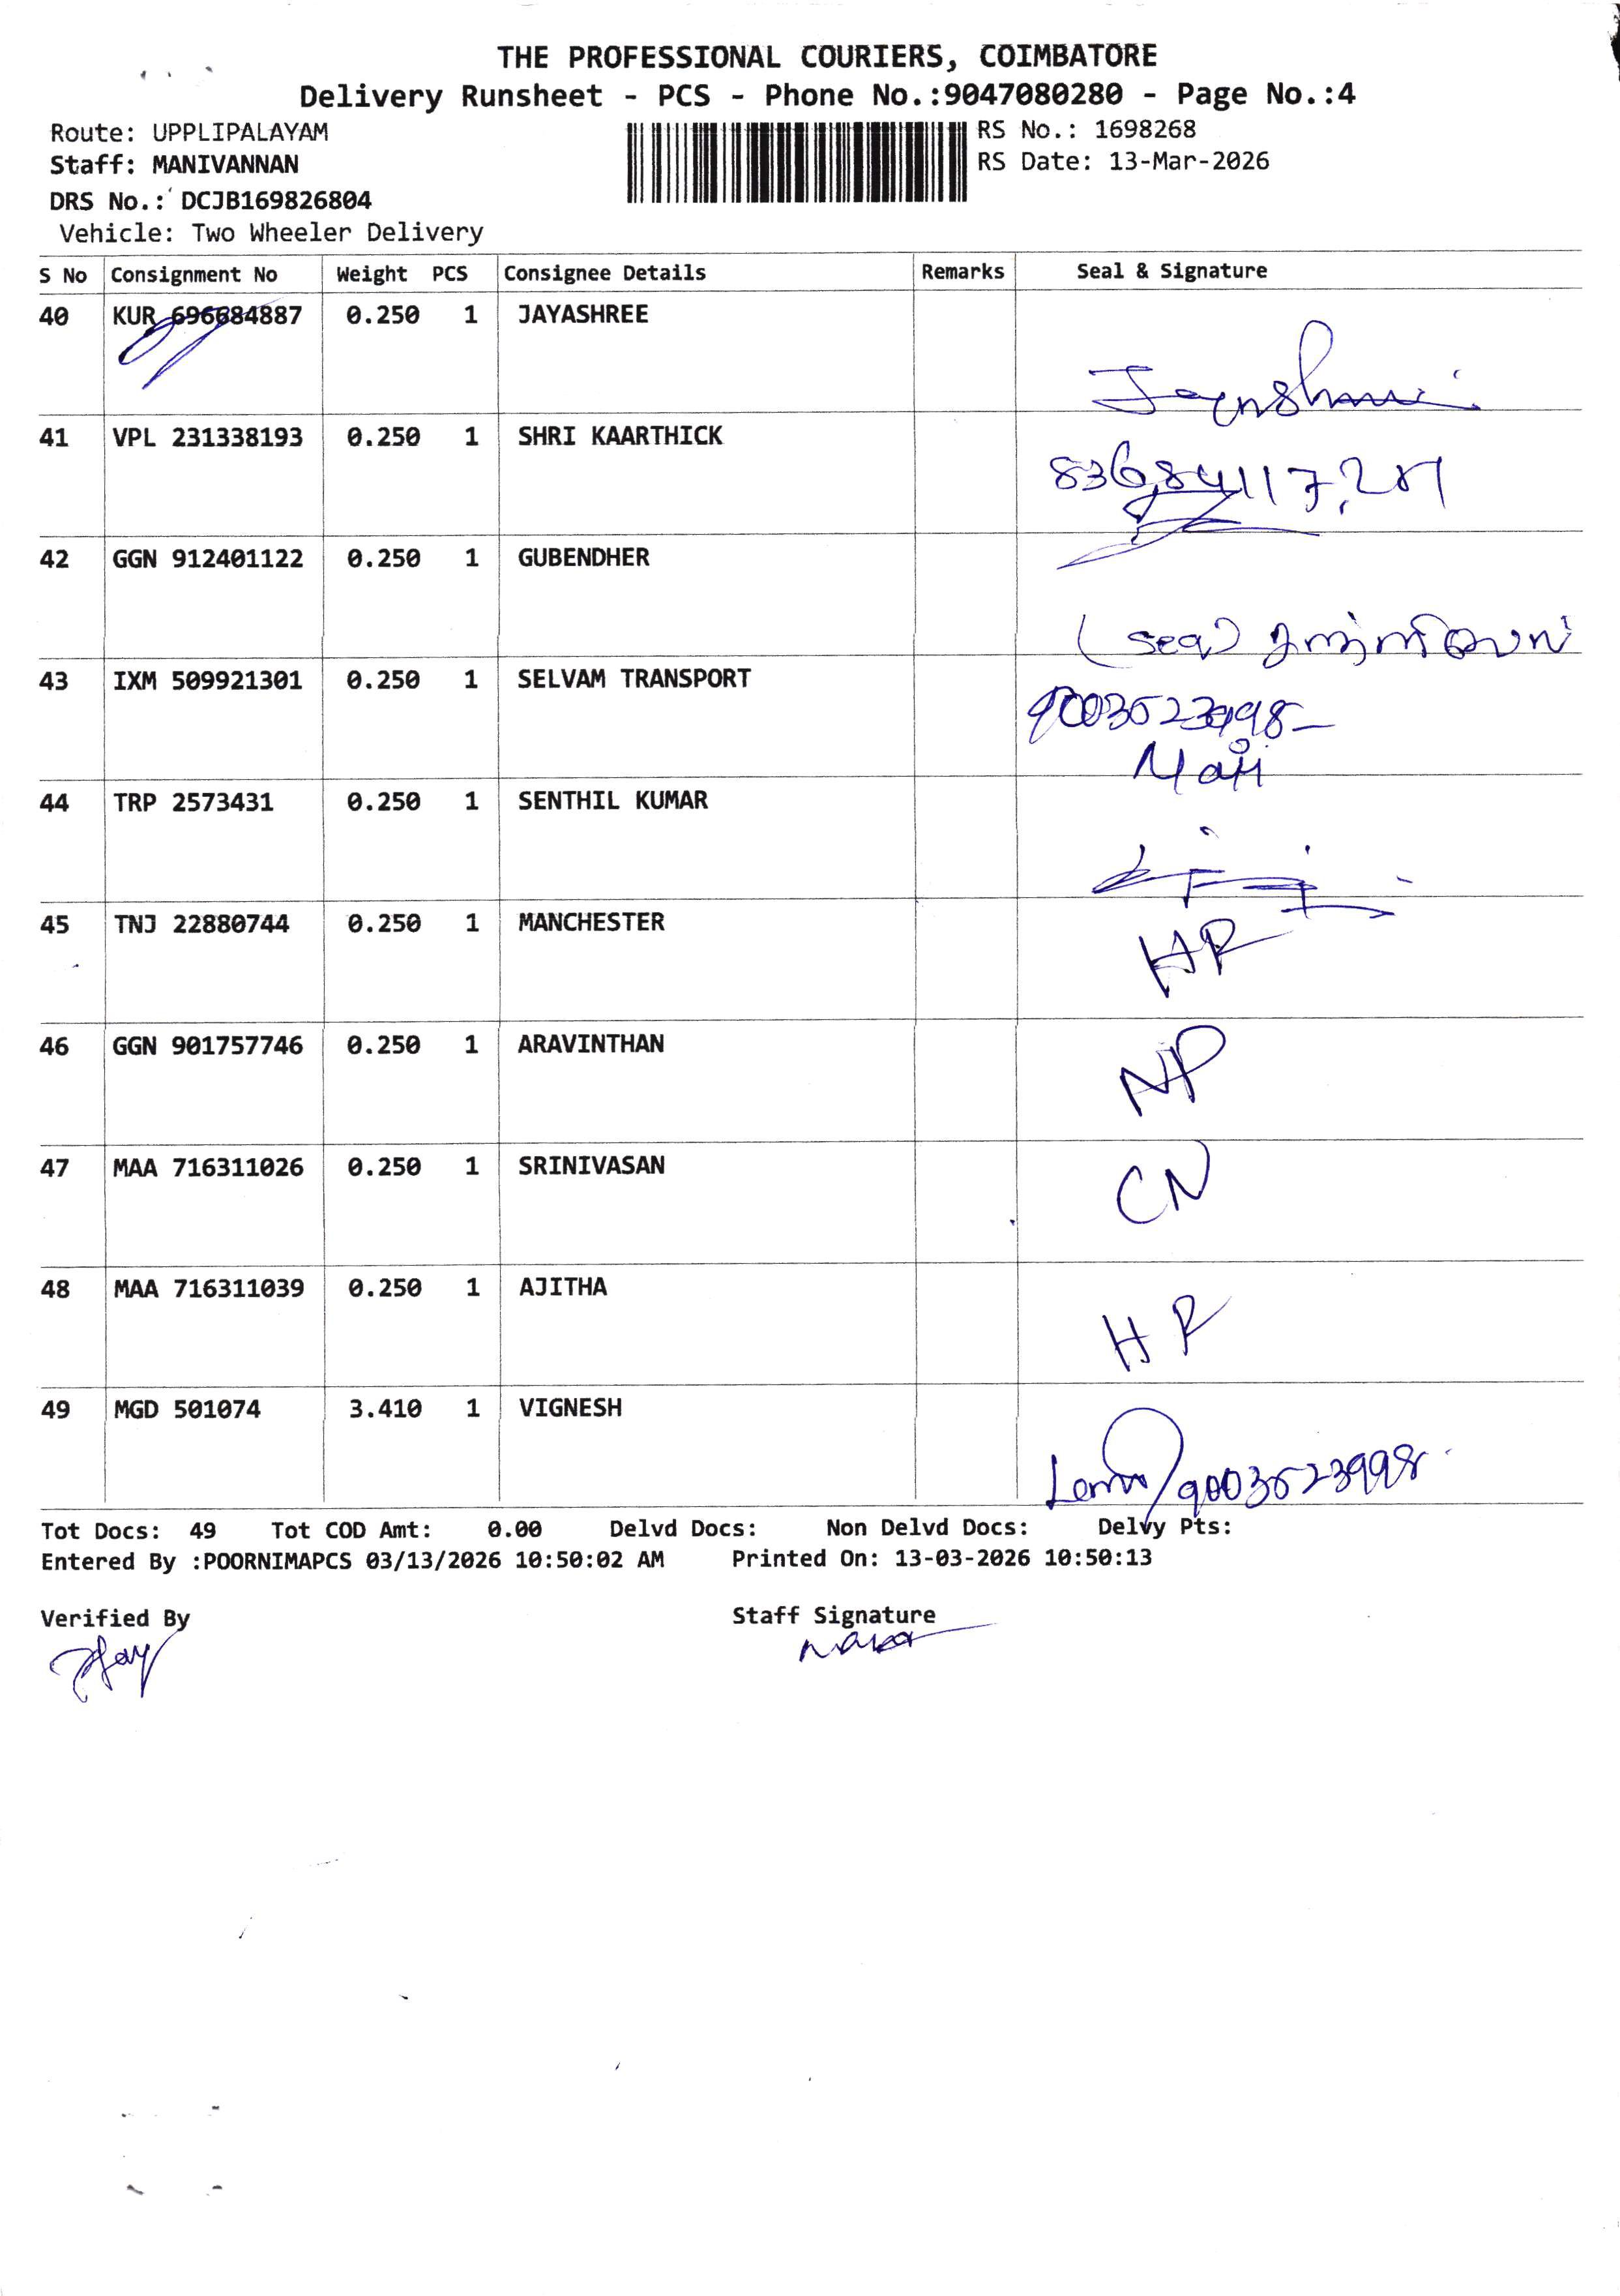 THE PROFESSIONAL COURIERS, COIMBATORE
Delivery Runsheet - PCS - Phone No.:9047080280 - Page No.:4
Route: UPPLIPALAYAM
Staff: MANIVANNAN
DRS No.: DCJB169826804
Vehicle: Two Wheeler Delivery
RS No.: 1698268
RS Date: 13-Mar-2026
S No Consignment No Weight PCS Consignee Details Remarks Seal & Signature
40 KUR 696684887 0.250 1 JAYASHREE
41 VPL 231338193 0.250 1 SHRI KAARTHICK
42 GGN 912401122 0.250 1 GUBENDHER
43 IXM 509921301 0.250 1 SELVAM TRANSPORT
44 TRP 2573431 0.250 1 SENTHIL KUMAR
45 TNJ 22880744 0.250 1 MANCHESTER HR
46 GGN 901757746 0.250 1 ARAVINTHAN NP
47 MAA 716311026 0.250 1 SRINIVASAN CN
48 MAA 716311039 0.250 1 AJITHA HR
49 MGD 501074 3.410 1 VIGNESH 9003523998
Tot Docs: 49 Tot COD Amt: 0.00 Delvd Docs: Non Delvd Docs: Delvy Pts:
Entered By :POORNIMAPCS 03/13/2026 10:50:02 AM Printed On: 13-03-2026 10:50:13
Verified By Staff Signature